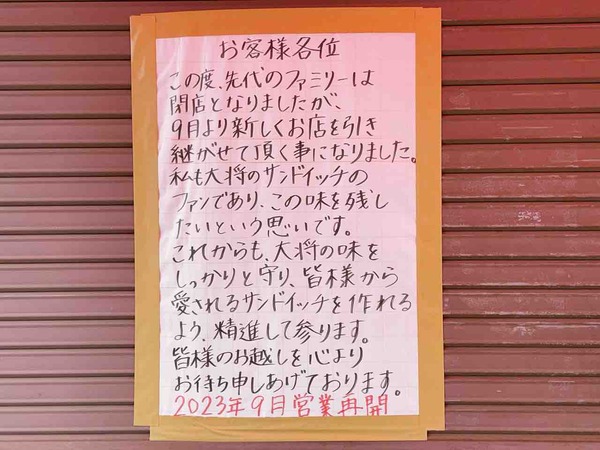 お客様各位
この度、先代のファミリーは
閉店となりましたが、
9月より新しくお店を引き
継がせて頂く事になりました。
私も大将のサンドイッチの
ファンであり、この味を残し
たいという思いです。
これからも、大将の味を
しっかりと守り、皆様から
愛されるサンドイッチを作れる
よう、精進して参ります。
皆様のお越しを心より
お待ち申しあげております。
2023年9月営業再開